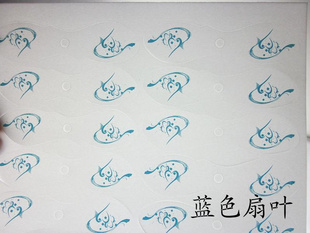 蓝色扇叶